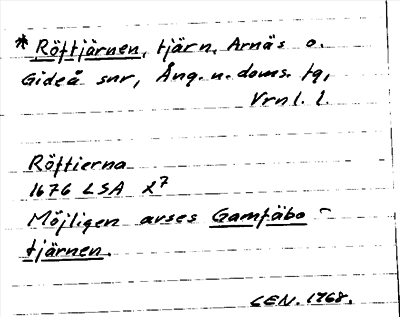 * Röftjärnen, tjärn, Arnäs o.
Gideå snr, Ång. n. doms. tg,
Vrnl. l.
Röftierna
1676 LSA Z7
Möjligen avses Gamfäbo-
tjärnen.
CEN. 1968.